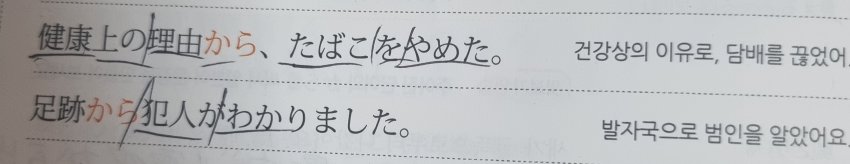 健康上の理由から、たばこをやめた。 건강상의 이유로, 담배를 끊었어
足跡から犯人がわかりました。 발자국으로 범인을 알았어요